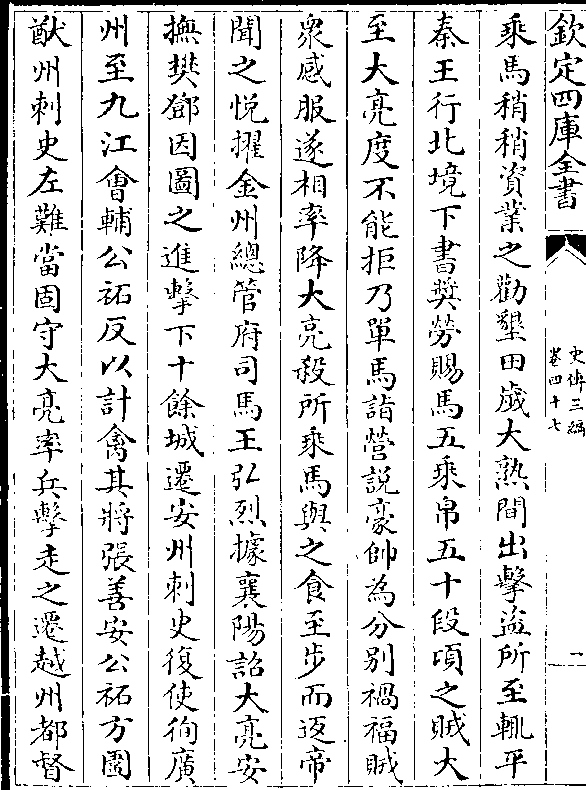 欽定四庫全書
史傳三編
卷四十七
一
乘馬稍稍資業之勸墾田歲大熟間出擊盜所至輒平
秦王行北境下書奬勞賜馬五乘帛五十段頃之賊大
至大亮度不能拒乃單馬詣營説豪帥為分别禍福賊
衆感服遂相率降大亮殺所乘馬與之食至步而返帝
聞之悦擢金州總管府司馬王弘烈據襄陽詔大亮安
撫樊鄧因圖之進擊下十餘城遷安州刺史復使徇廣
州至九江會輔公祏反以計禽其將張善安公祏方圍
猷州刺史左難當固守大亮率兵擊走之遷越州都督